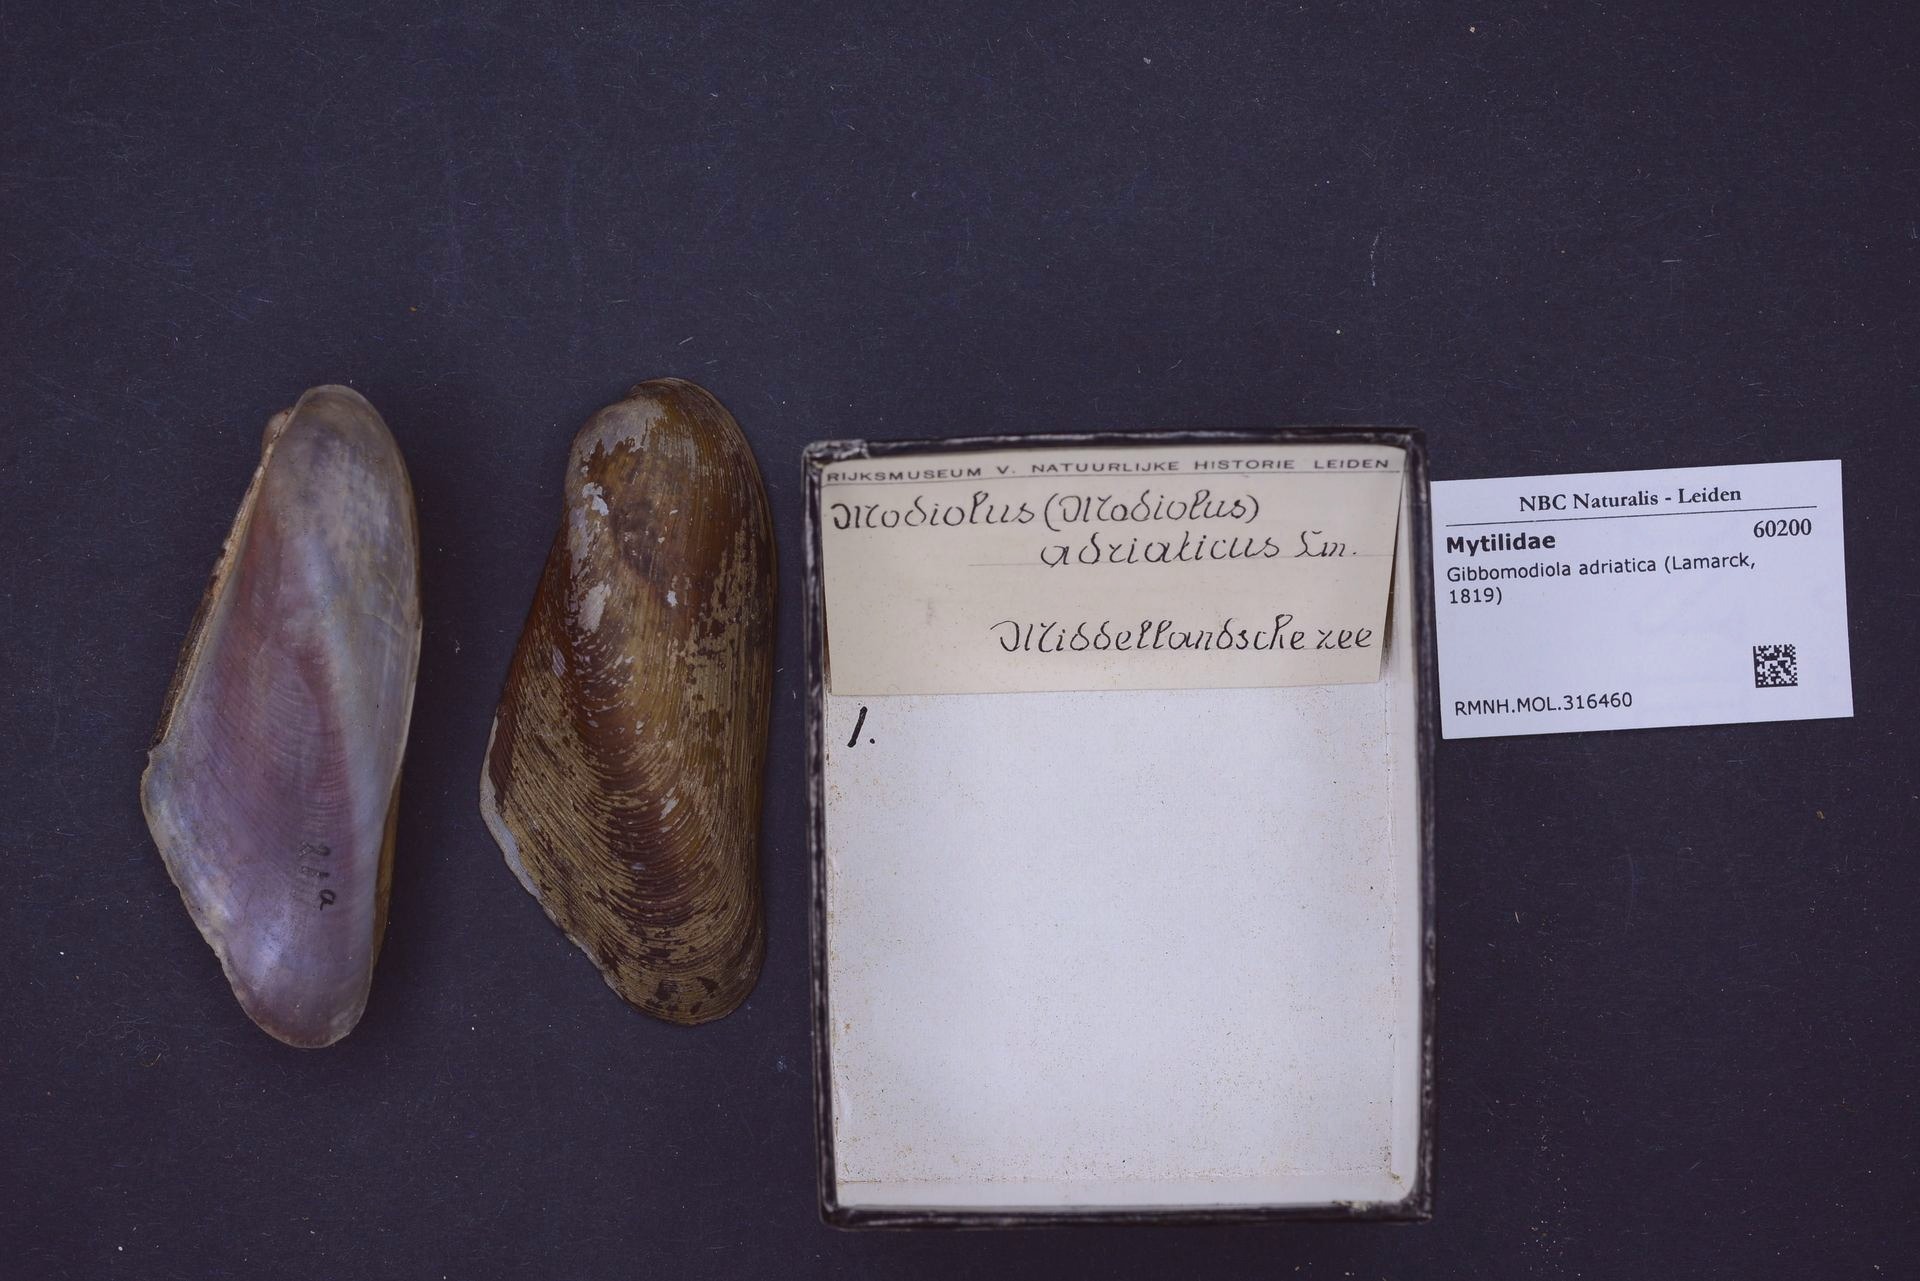 RIJKSMUSEUM V. NATUURLIJKE HISTORIE LEIDEN
Modiolus (Modiolus)
adriaticus Lm.
Middellandsche zee
1.
NBC Naturalis - Leiden
60200
Mytilidae
Gibbomodiola adriatica (Lamarck,
1819)
RMNH.MOL.316460